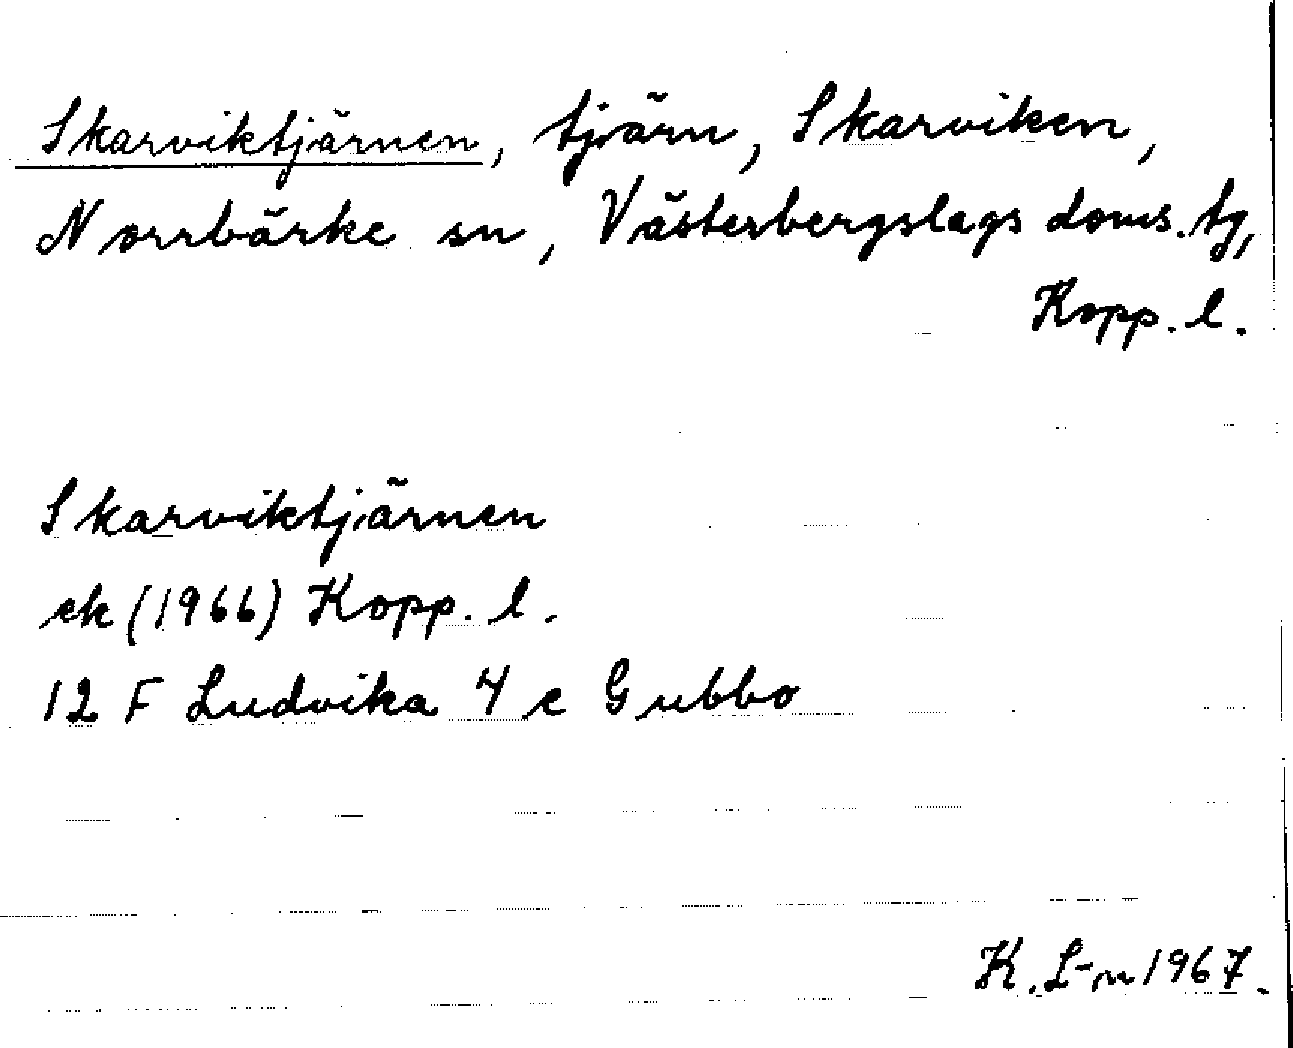 Skarviktjärnen, tjärn, Skarviken,
Norrbärke sn, Västerbergslags doms. tg,
Kopp. l.
Skarviktjärnen
ek (1966) Kopp. l.
12 F Ludvika 4 e Gubbo
K. L-n 1967.